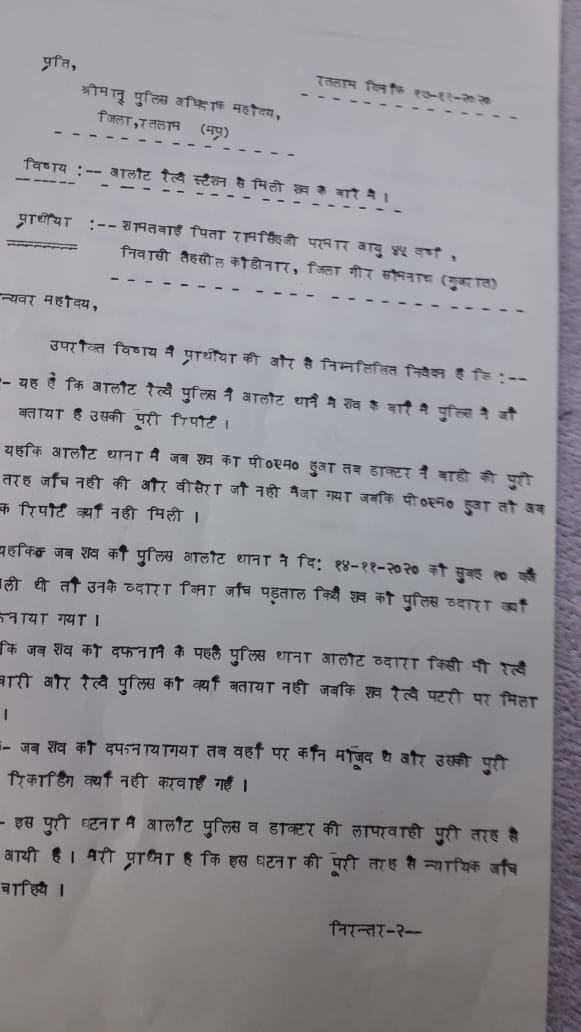 प्रति,
रतलाम दिनांक १७-११-२०२०
श्रीमान् पुलिस अधिक्षक महोदय,
जिला,रतलाम (मप्र)
विषय :-- आलोट रेल्वे स्टेशन से मिली शव के बारे मे ।
प्रार्थीया :-- शामतबाई पिता रामसिंहजी परमार आयु ४५ वर्ष ,
निवासी तेहसील कोडीनार, जिला गीर सोमनाथ (गुजरात)
न्यवर महोदय,
उपरोक्त विषय मे प्रार्थीया की और से निम्नलिखित निवेदन है कि :--
:- यह है कि आलोट रेल्वे पुलिस ने आलोट थाने मे शव के बारे मे पुलिस ने जो
बताया है उसकी पूरी रिपोर्ट ।
यहकि आलोट थाना मे जब शव का पी०एम० हुआ तब डाक्टर ने बाडी की पुरी
तरह जाँच नही की और वीसेरा जो नही भेजा गया जबकि पी०एम० हुआ तो अब
क रिपोर्ट क्यों नही मिली ।
यहकि जब शव को पुलिस आलोट थाना ने दि: १४-११-२०२० को सुबह १० बजे
ली थी तो उनके व्दारा बिना जाँच पड़ताल किये शव को पुलिस व्दारा क्यों
फनाया गया ।
कि जब शव को दफनाने के पहले पुलिस थाना आलोट व्दारा किसी भी रेल्वे
चारी और रेल्वे पुलिस को क्यों बताया नही जबकि शव रेल्वे पटरी पर मिला
।
:- जब शव को दफनायागया तब वहाँ पर कौन मौजूद थे और उसकी पुरी
रिकार्डिंग क्यों नही करवाई गई ।
- इस पुरी घटना मे आलोट पुलिस व डाक्टर की लापरवाही पुरी तरह से
आयी है । मेरी प्रार्थना है कि इस घटना की पूरी तरह से न्यायिक जाँच
चाहिये ।
निरन्तर-२--